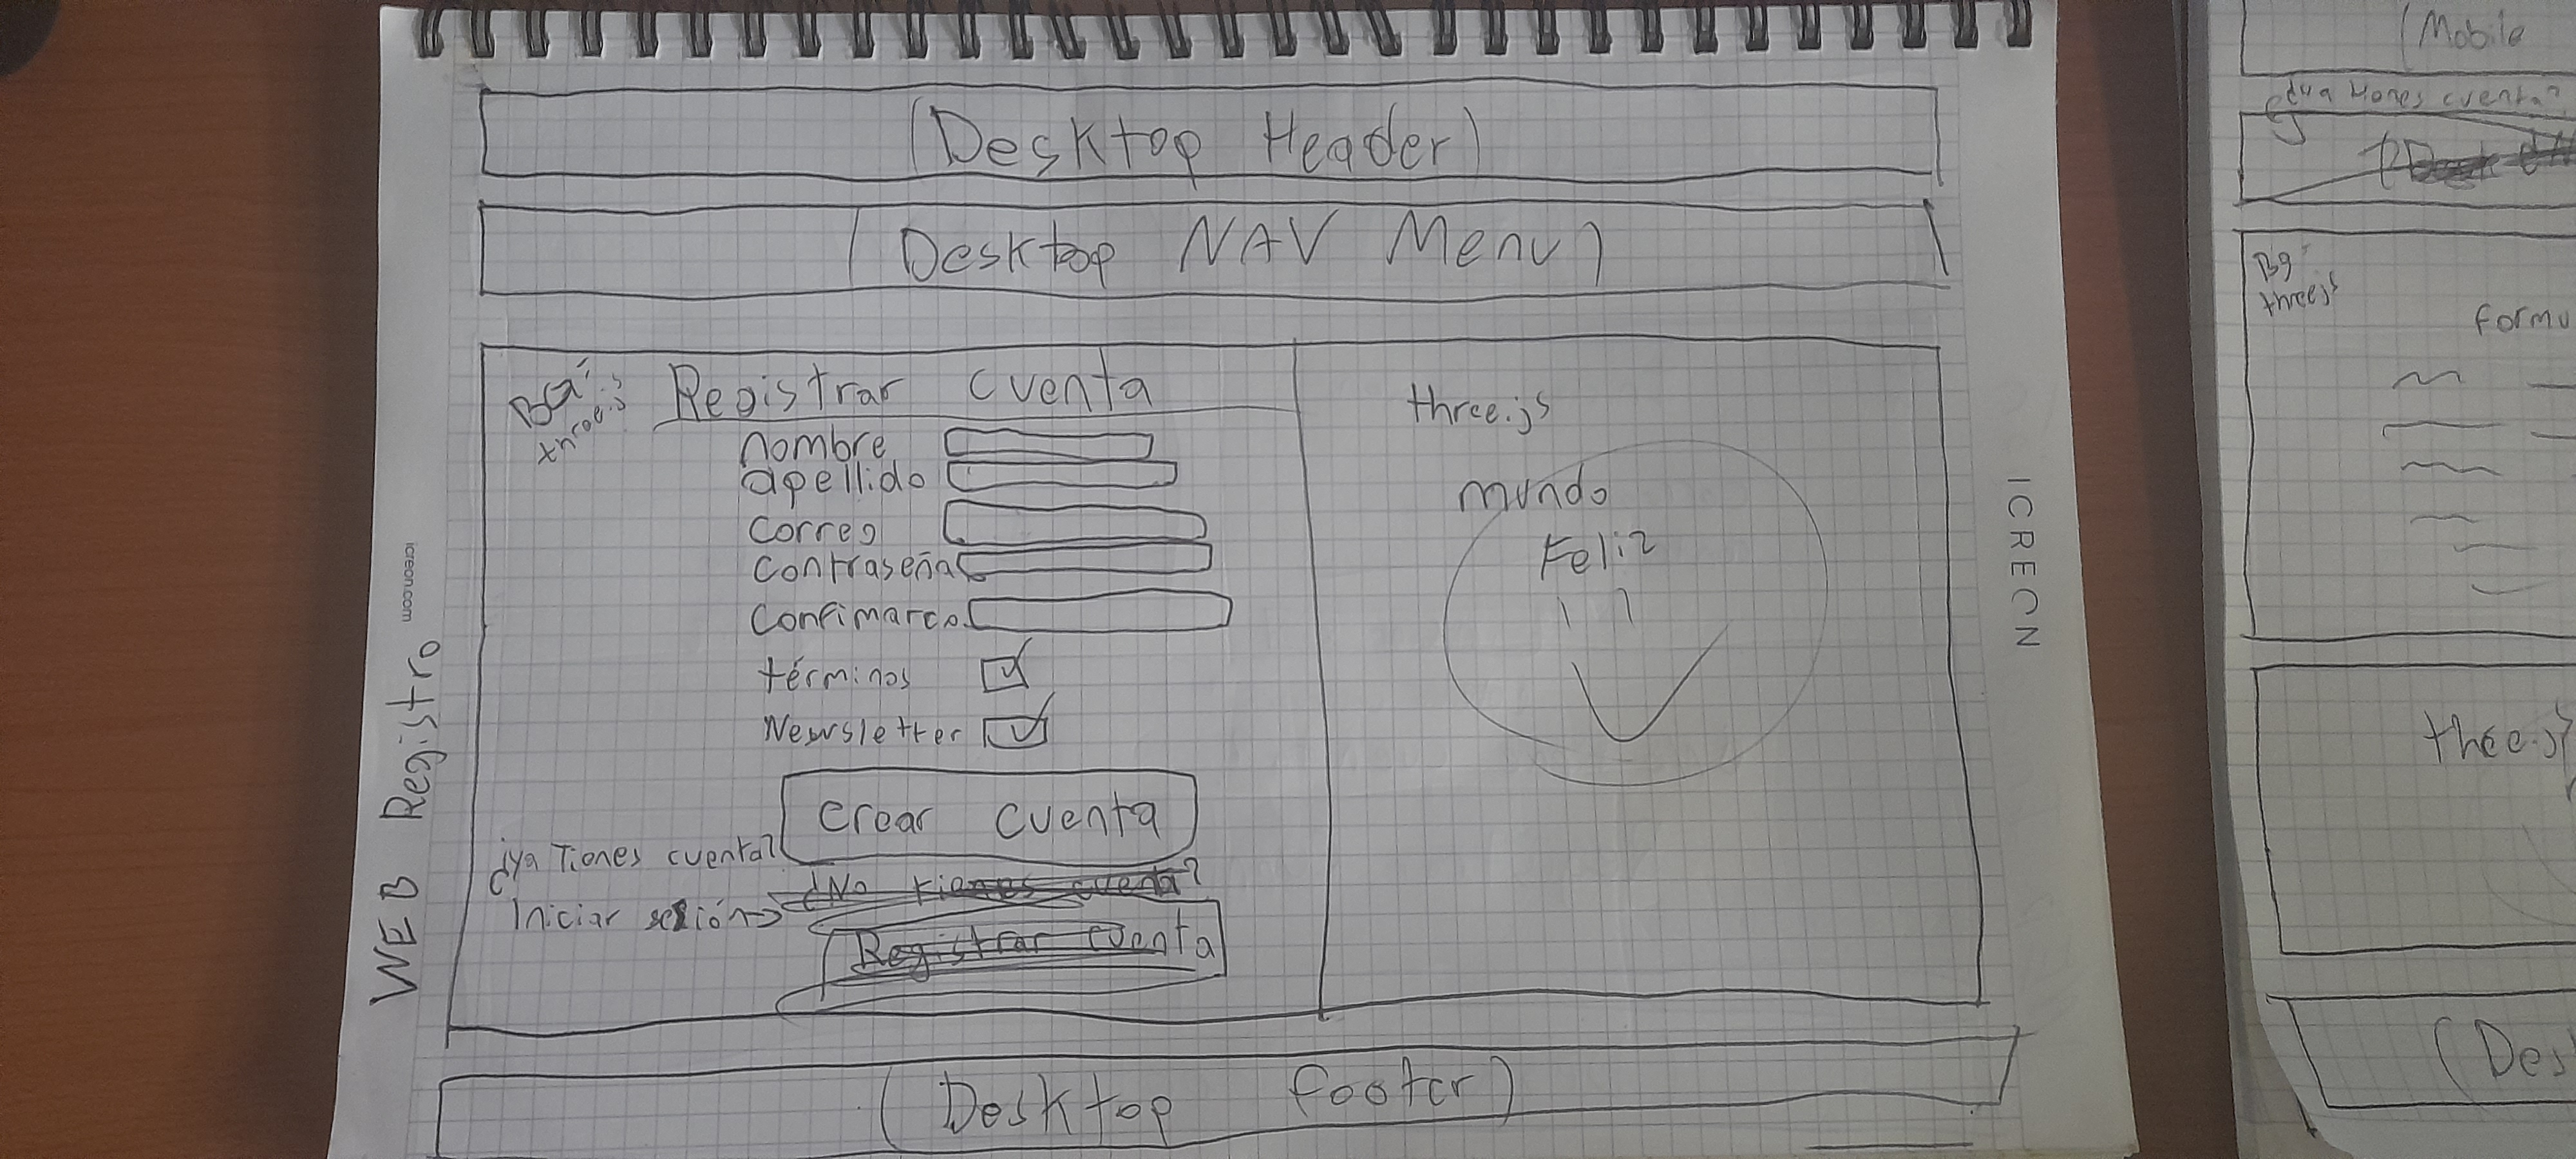 (Desktop Header)
(Desktop NAV Menu)
BG:
three.js
Registrar cuenta
nombre
apellido
correo
contraseña
Confimarco.
términos
Newsletter
crear cuenta
¿ya Tienes cuenta?
Iniciar sesión->
¿No tienes cuenta?
Registrar cuenta
three.js
mundo
Feliz
(Desktop footer)
WEB Registro
icreon.com
ICREON
(Mobile
¿ya tienes cuenta?
BG
threejs
formu
thee.js
(Des